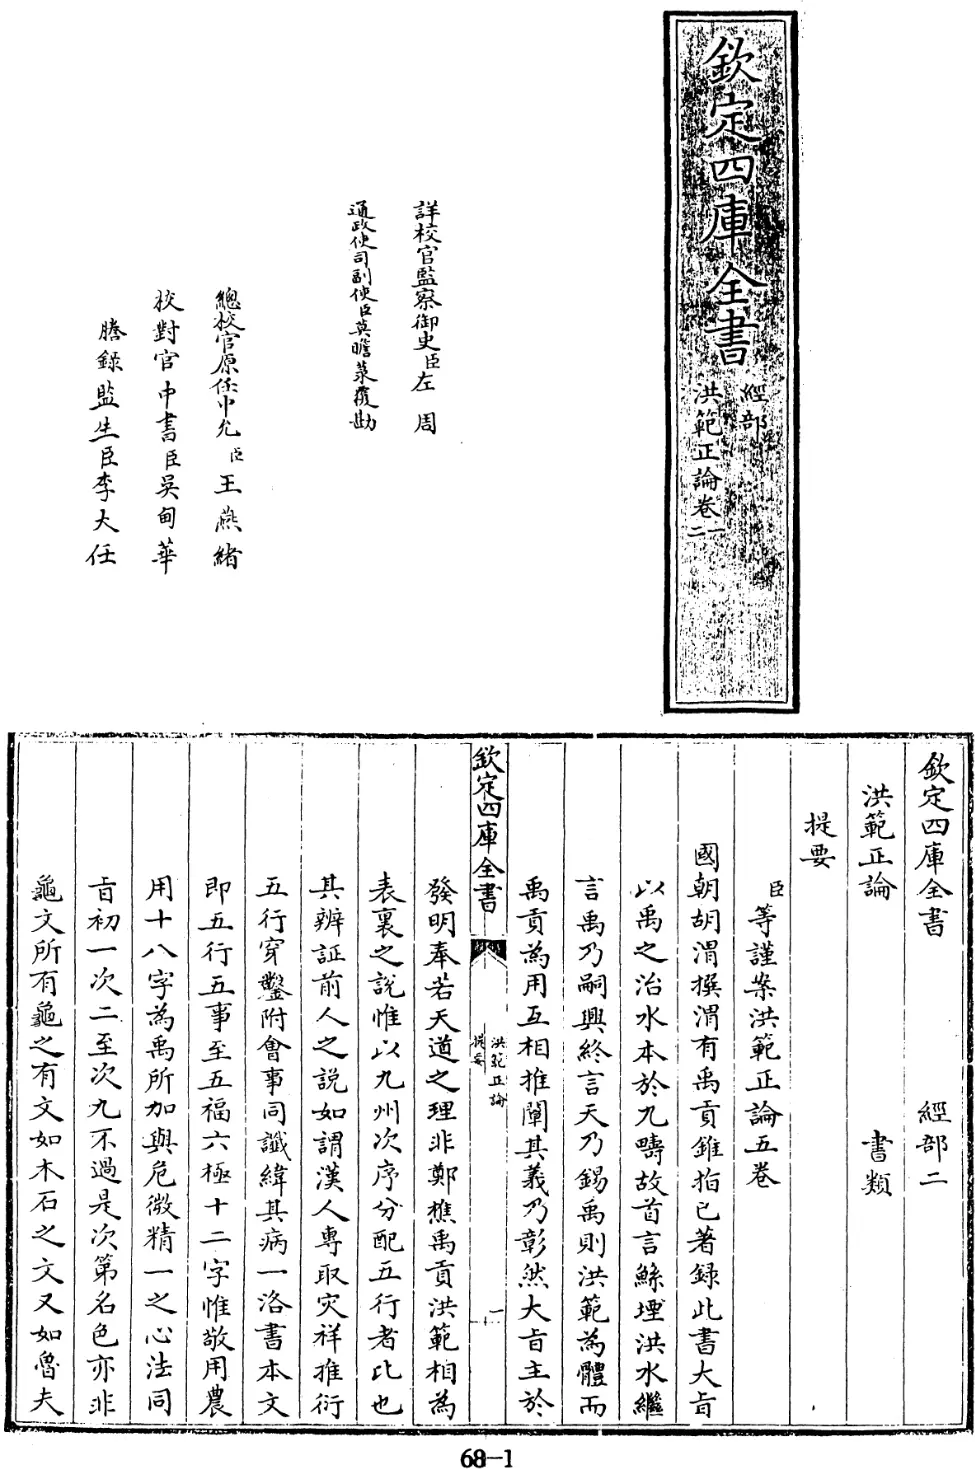 欽定四庫全書
經部
洪範正論卷一
二
詳校官監察御史臣左周
通政使司副使臣莫瞻菉覆勘
總校官原任中允臣王燕緒
校對官中書臣吳甸華
謄錄監生臣李大任
欽定四庫全書 經部二
洪範正論 書類
提要
臣等謹案洪範正論五卷
國朝胡渭撰渭有禹貢錐指已著録此書大㫖
以禹之治水本於九疇故首言鯀堙洪水繼
言禹乃嗣興終言天乃錫禹則洪範為體而
禹貢為用互相推闡其義乃彰然大㫖主於
欽定四庫全書
洪範正論
提要
一
發明奉若天道之理非鄭樵禹貢洪範相為
表裏之說惟以九州次序分配五行者比也
其辨証前人之說如謂漢人専取災祥推衍
五行穿鑿附會事同讖緯其病一洛書本文
即五行五事至五福六極十二字惟敬用農
用十八字為禹所加與危微精一之心法同
㫖初一次二至次九不過是次第名色亦非
龜文所有龜之有文如木石之文又如魯夫
68-1